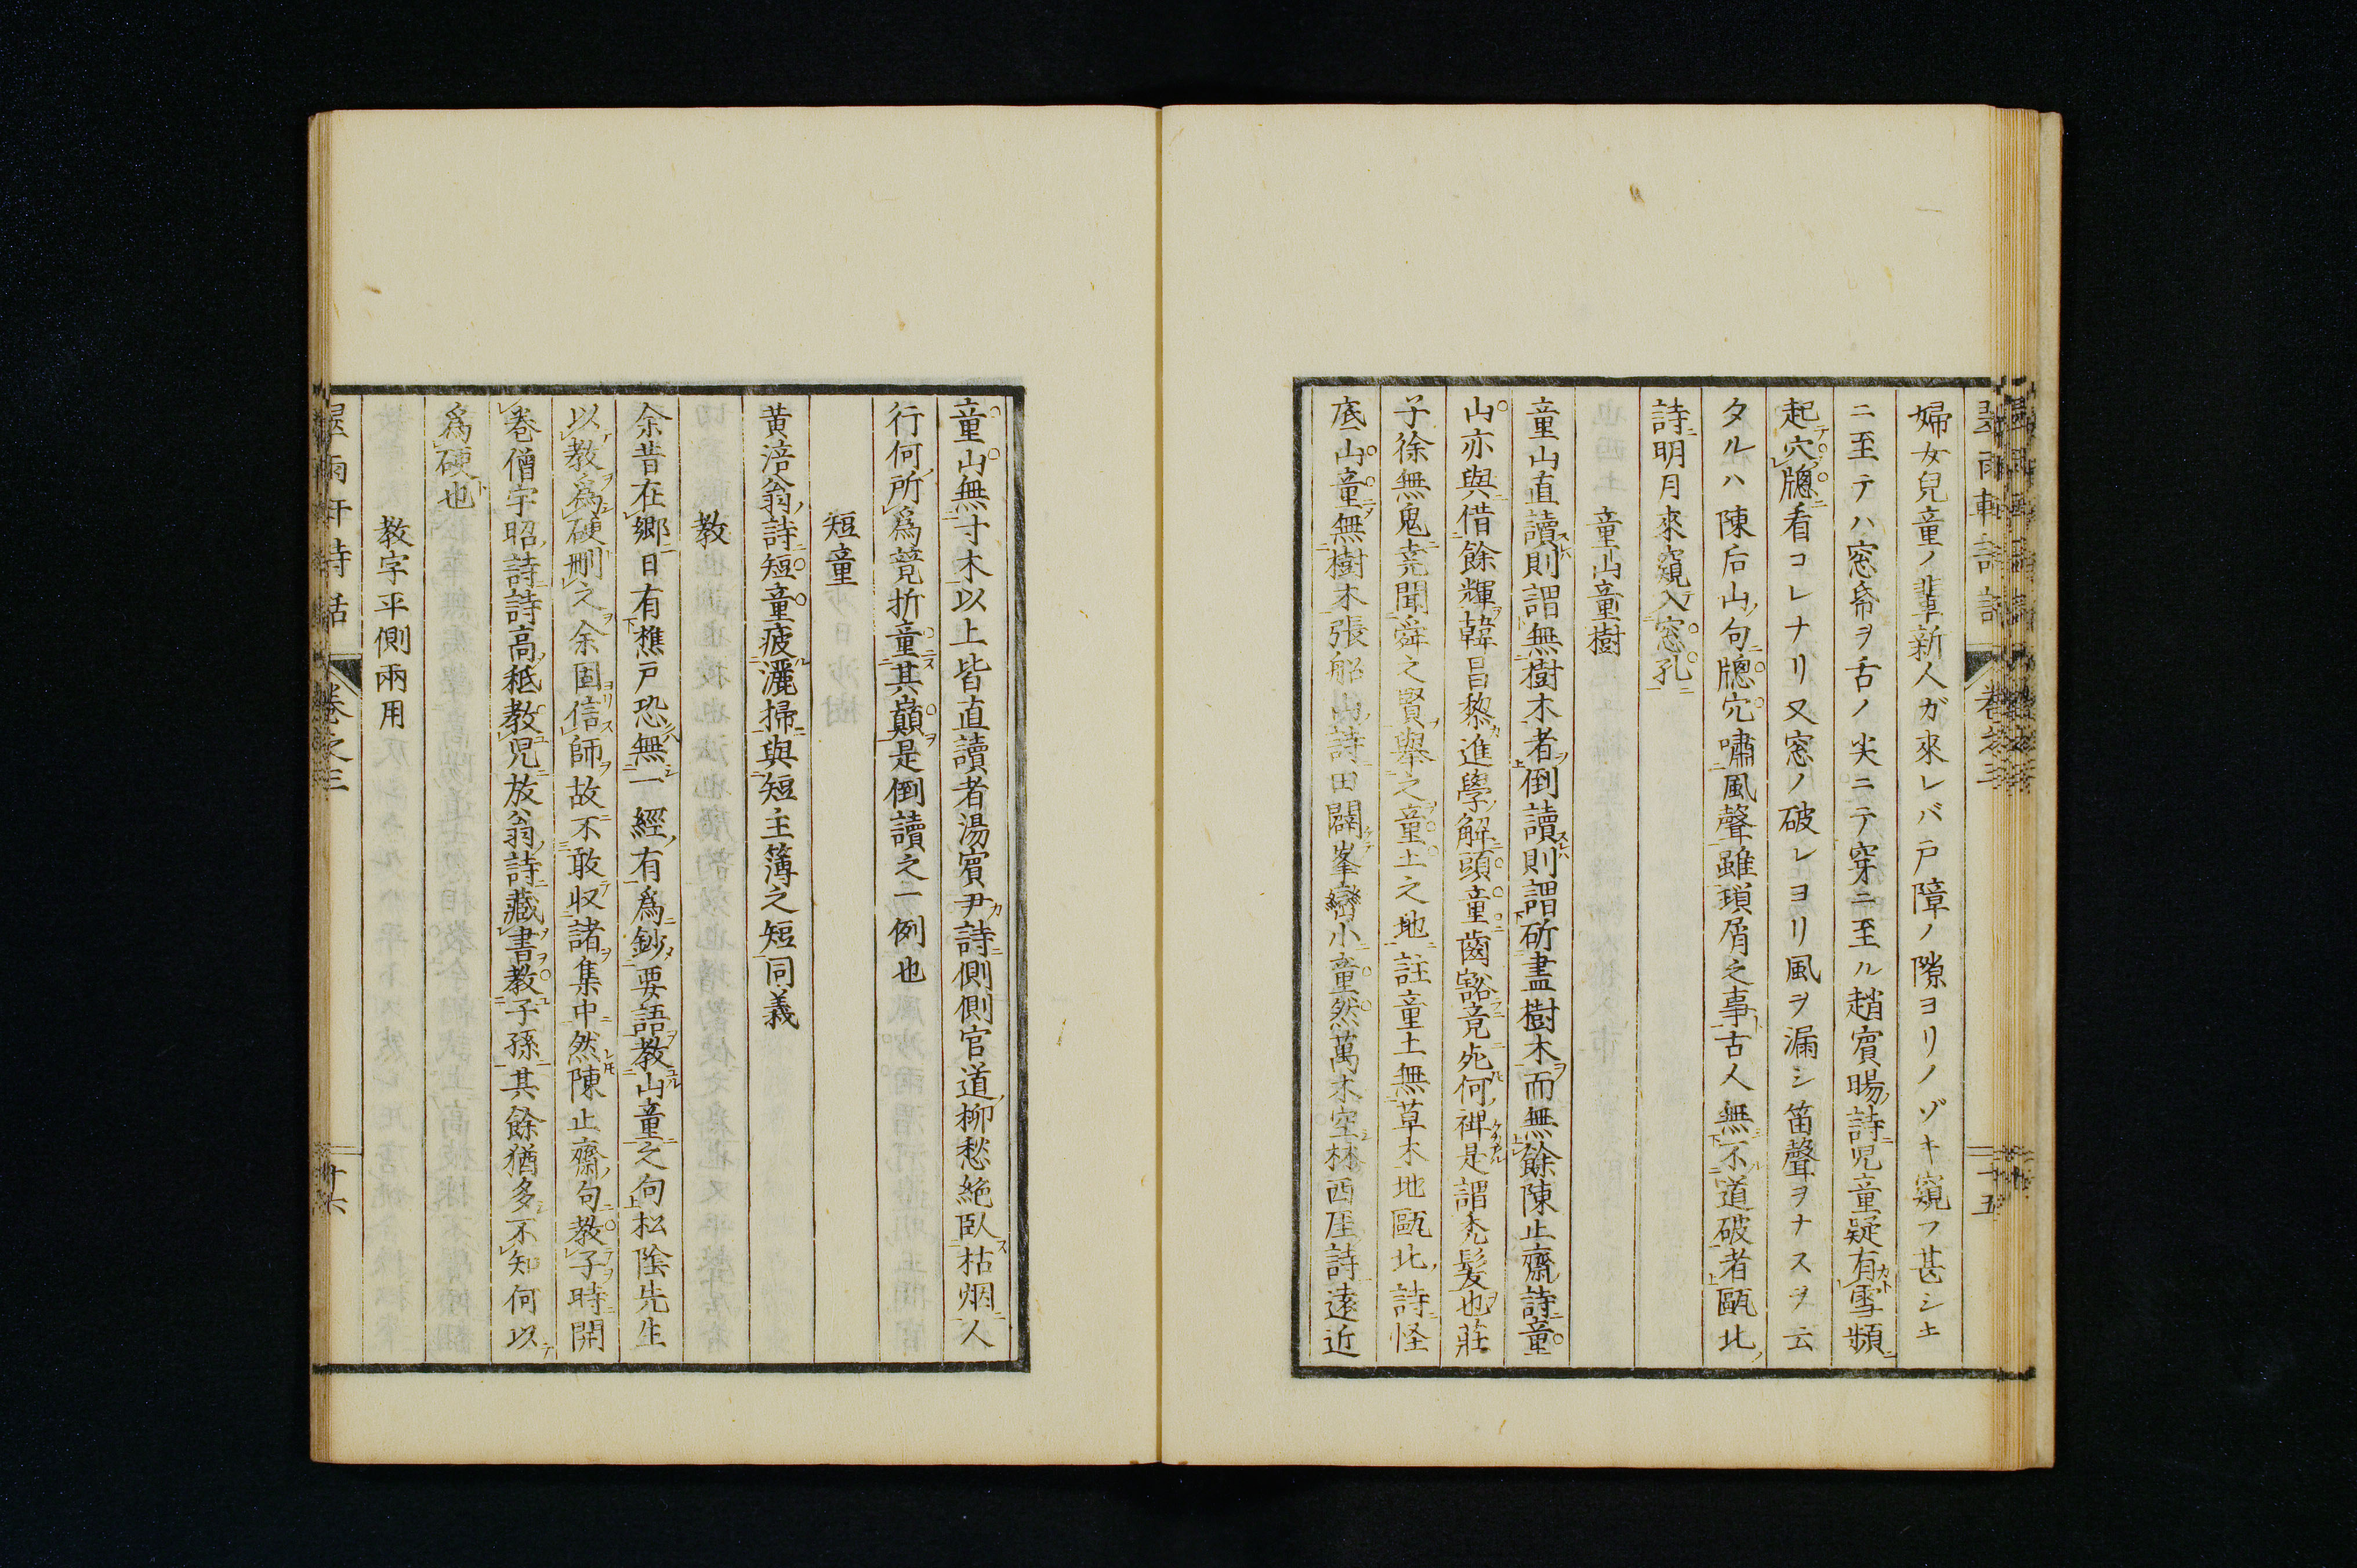 婦女兒童ノ輩新人ガ來レバ戸障ノ隙ヨリノゾキ窺フ甚シ上
ニ至テハ窓帋ヲ舌ノ尖ニテ穿ニ至ル趙賓暘詩児童疑有雪頻
起穴牕看コレナリ又窓ノ破レヨリ風ヲ漏シ笛聲ヲナスヲ云
タルハ陳后山句牕穴嘯風聲雖瑣屑之事古人無不道破者甌北
詩明月來窺入窓孔
童山童樹
童山直讀則謂無樹木者倒讀則謂斫盡樹木而無餘陳止齋詩童
山亦與借餘輝韓昌黎進學解頭童齒豁竟死何裨是謂禿髪也莊
子徐無鬼堯聞舜之賢舉之童土之地註童土無草木地甌北詩怪
底山童無樹木張船山詩田闢峯巒小童然萬木空林西厓詩遠近
童山無寸木以上皆直讀者湯賓尹詩側側官道柳愁絶臥枯烟人
行何所爲薨折童其巔是倒讀之一例也
短童
黄涪翁詩短童疲灑掃與短主簿之短同義
教
余昔在郷日有樵戸恐無一經有爲鈔要語教山童之句松陰先生
以教爲硬刪之余固信師故不敢収諸集中然陳止齋句教子時開
卷僧宇昭詩詩高秪教児放翁詩藏書教子孫其餘猶多不知何以
爲硬也
教字平側兩用
卷之三
十六